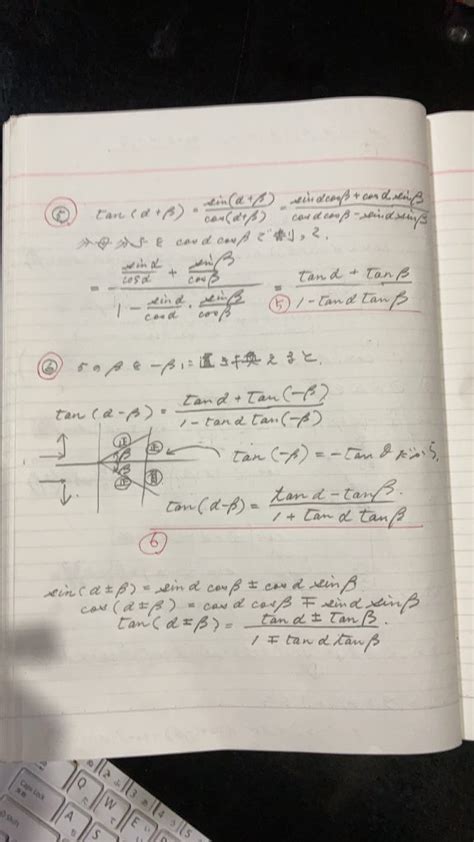 ⑤ tan(α+β) = sin(α+β)/cos(α+β) = (sinαcosβ+cosαsinβ)/(cosαcosβ−sinαsinβ)
分母分子を cosαcosβで割って.
= (sinα/cosα + sinβ/cosβ)/(1 − sinα/cosα · sinβ/cosβ) = (tanα + tanβ)/(1−tanαtanβ)
⑤
⑥ 5のβを−βに置き換えると.
tan(α−β) = (tanα+tan(−β))/(1−tanαtan(−β))
tan(−β) = −tanθだから,
正
β
β
tan(α−β) = (tanα−tanβ)/(1+tanαtanβ)
⑥
sin(α±β) = sinαcosβ±cosαsinβ
cos(α±β) = cosαcosβ∓sinαsinβ
tan(α±β) = (tanα±tanβ)/(1∓tanαtanβ).
Caps Lock
Q
W
E
A
S
Shift